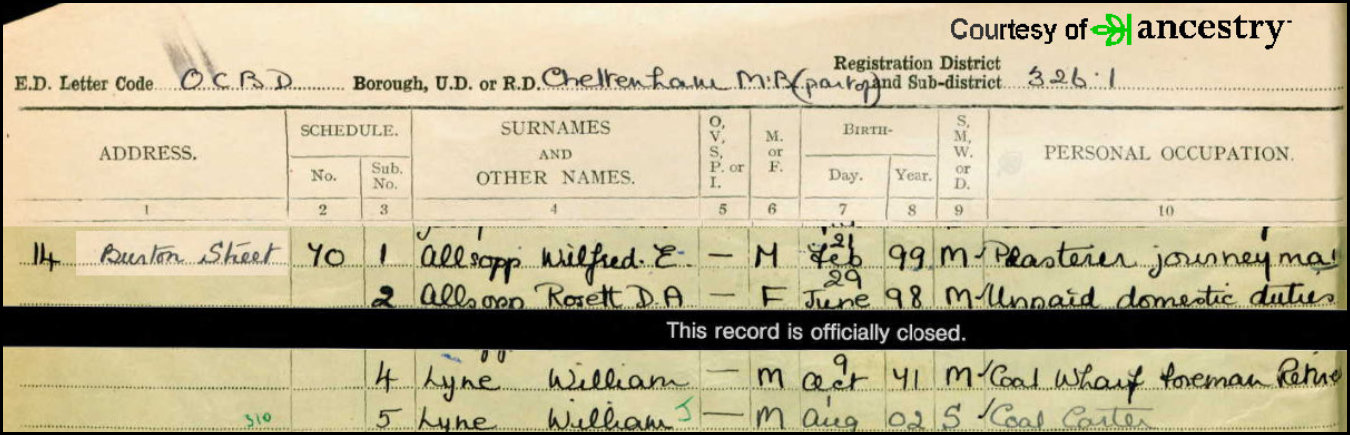 Courtesy of ancestry
E.D. Letter Code O.C.B.D. Borough, U.D. or R.D. Cheltenham M.B. (part of) Registration District and Sub-district 326.1
ADDRESS. SCHEDULE. No. Sub. No. SURNAMES AND OTHER NAMES. O, V, S, P. or I. M. or F. BIRTH- Day. Year. S, M, W. or D. PERSONAL OCCUPATION.
1 2 3 4 5 6 7 8 9 10
14 Burton Street 70 1 Allsopp Wilfred. E. — M 21 Feb 99 M Plasterer journeyma
2 Allsopp Rosett D.A — F 29 June 98 M Unpaid domestic duties
This record is officially closed.
4 Lyne William — M 9 Oct 71 M Coal Wharf foreman Retire
310 5 Lyne William J — M Aug 02 S Coal Carter